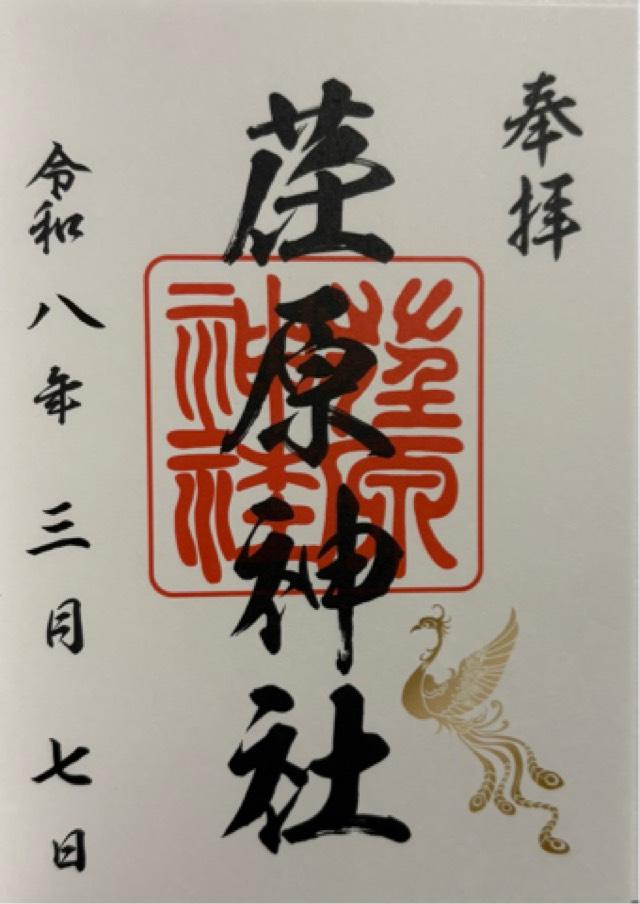 奉拝
荏原神社
荏原神社
令和八年三月七日